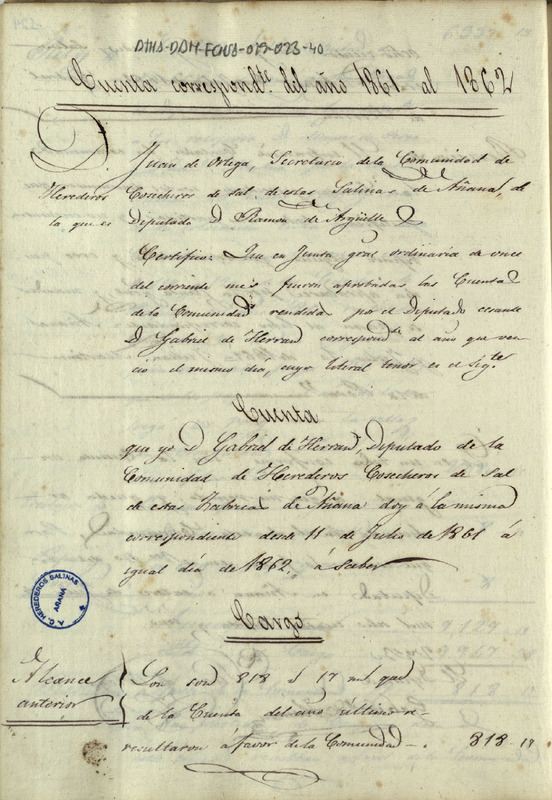 DMHS-DDM-FCHVA-019-023-40
Cuenta correspond.te del año 1861 al 1862
D. Juan de Ortega, Secretario de la Comunidad de
Herederos Cosecheros de sal de estas Salinas de Añana, de
la que es Diputado D Ramon de Argüelles
Certifico: Que en Junta gral ordinaria de once
del corriente mes fueron aprobadas las Cuentas
de la Comunidad rendidas por el Diputado cesante
D Gabriel de Herran correspond.te al año que ven
ció el mismo dia, cuyo literal tenor es el sig.te
Cuenta
que yo D Gabriel de Herran, Diputado de la
Comunidad de Herederos Cosecheros de Sal
de estas Fabricas de Añana doy á la misma
correspondiente desde 11 de Julio de 1861 á
igual dia de 1862, á Saber
A. C. HEREDEROS SALINAS
AÑANA
Cargo
Alcance
anterior
Son 818 17 que
de la Cuenta del año último re-
resultaron á favor de la Comunidad. 818-17